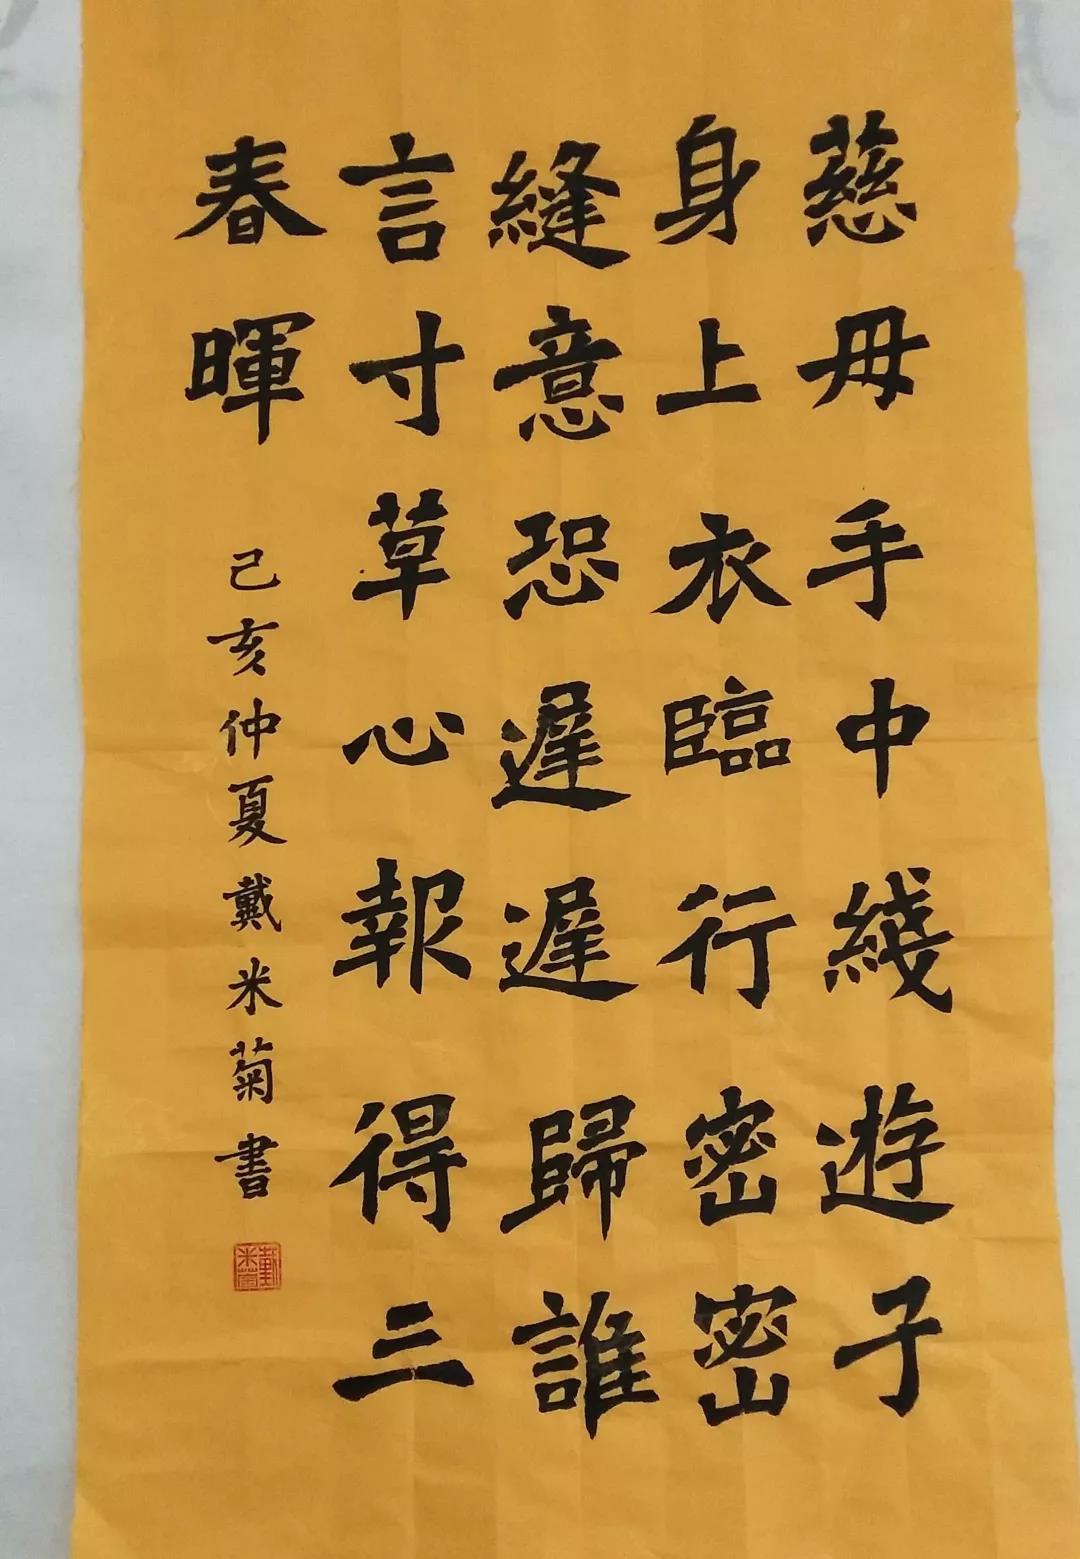 慈母手中綫遊子
身上衣臨行密密
縫意恐遲遲歸誰
言寸草心報得三
春暉
己亥仲夏戴米菊書
戴米菊